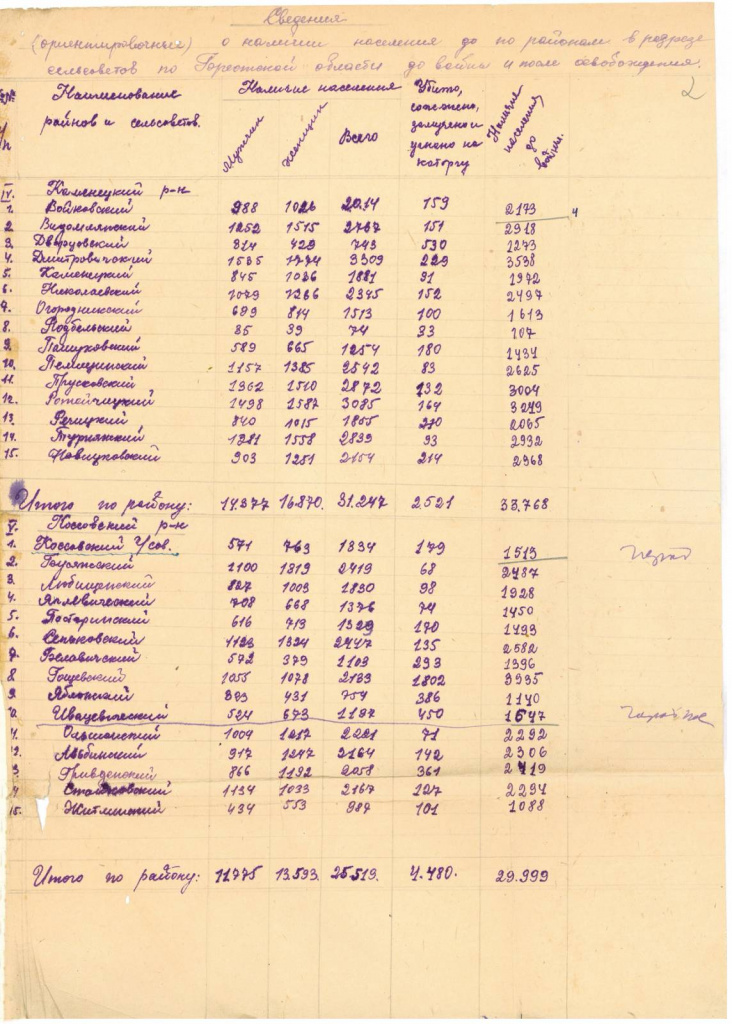 Сведения
(ориентировочные) о наличии населения до по районам в разрезе
сельсоветов по Брестской области до войны и после освобождения.
2
Наименование районов и сельсоветов.
Наличие населения
Мужчин Женщин Всего
Убито, сожжено, замучено и угнано на каторгу
Наличие населения до войны.
IV. Каменецкий р-н
1. Войковский 988 1026 2014 159 2173
2. Видомлянский 1252 1515 2767 151 2918
3. Дворцовский 314 429 743 530 1273
4. Дмитровичский 1535 1774 3309 229 3538
5. Каменецкий 845 1036 1881 91 1972
6. Николаевский 1079 1266 2345 152 2497
7. Огородникский 699 814 1513 100 1613
8. 35 39 74 33 107
9. 589 665 1254 180 1434
10. Пелищенский 1157 1385 2542 83 2625
11. Прусковский 1362 1510 2872 132 3004
12. Ротайчицкий 1498 1587 3085 164 3249
13. Речицкий 840 1015 1855 210 2065
14. Турнянский 1281 1558 2839 93 2932
15. Новицковский 903 1251 2154 214 2368
Итого по району: 14.377 16.870. 31.247 2521 33.768
V. Коссовский р-н
1. Коссовский Г/сов. 571 763 1334 179 1513
2. 1100 1319 2419 68 2487
3. Любищицкий 827 1003 1830 98 1928
4. 708 668 1376 74 1450
5. 616 713 1329 170 1493
6. Сеньковский 1123 1324 2447 135 2582
7. Белавичский 572 379 1103 293 1396
8 Гощевский 1055 1078 2133 1802 3935
9. Яблонский 323 431 754 386 1140
Ивацевичский 524 673 1197 450 1647
Ольшанский 1004 1217 2221 71 2292
917 1247 2164 142 2306
Гривденский 866 1192 2058 361 2419
1134 1033 2167 127 2294
15. Житлинский 434 553 987 101 1088
Итого по району: 11775 13.593. 25.519. 4.480. 29.999